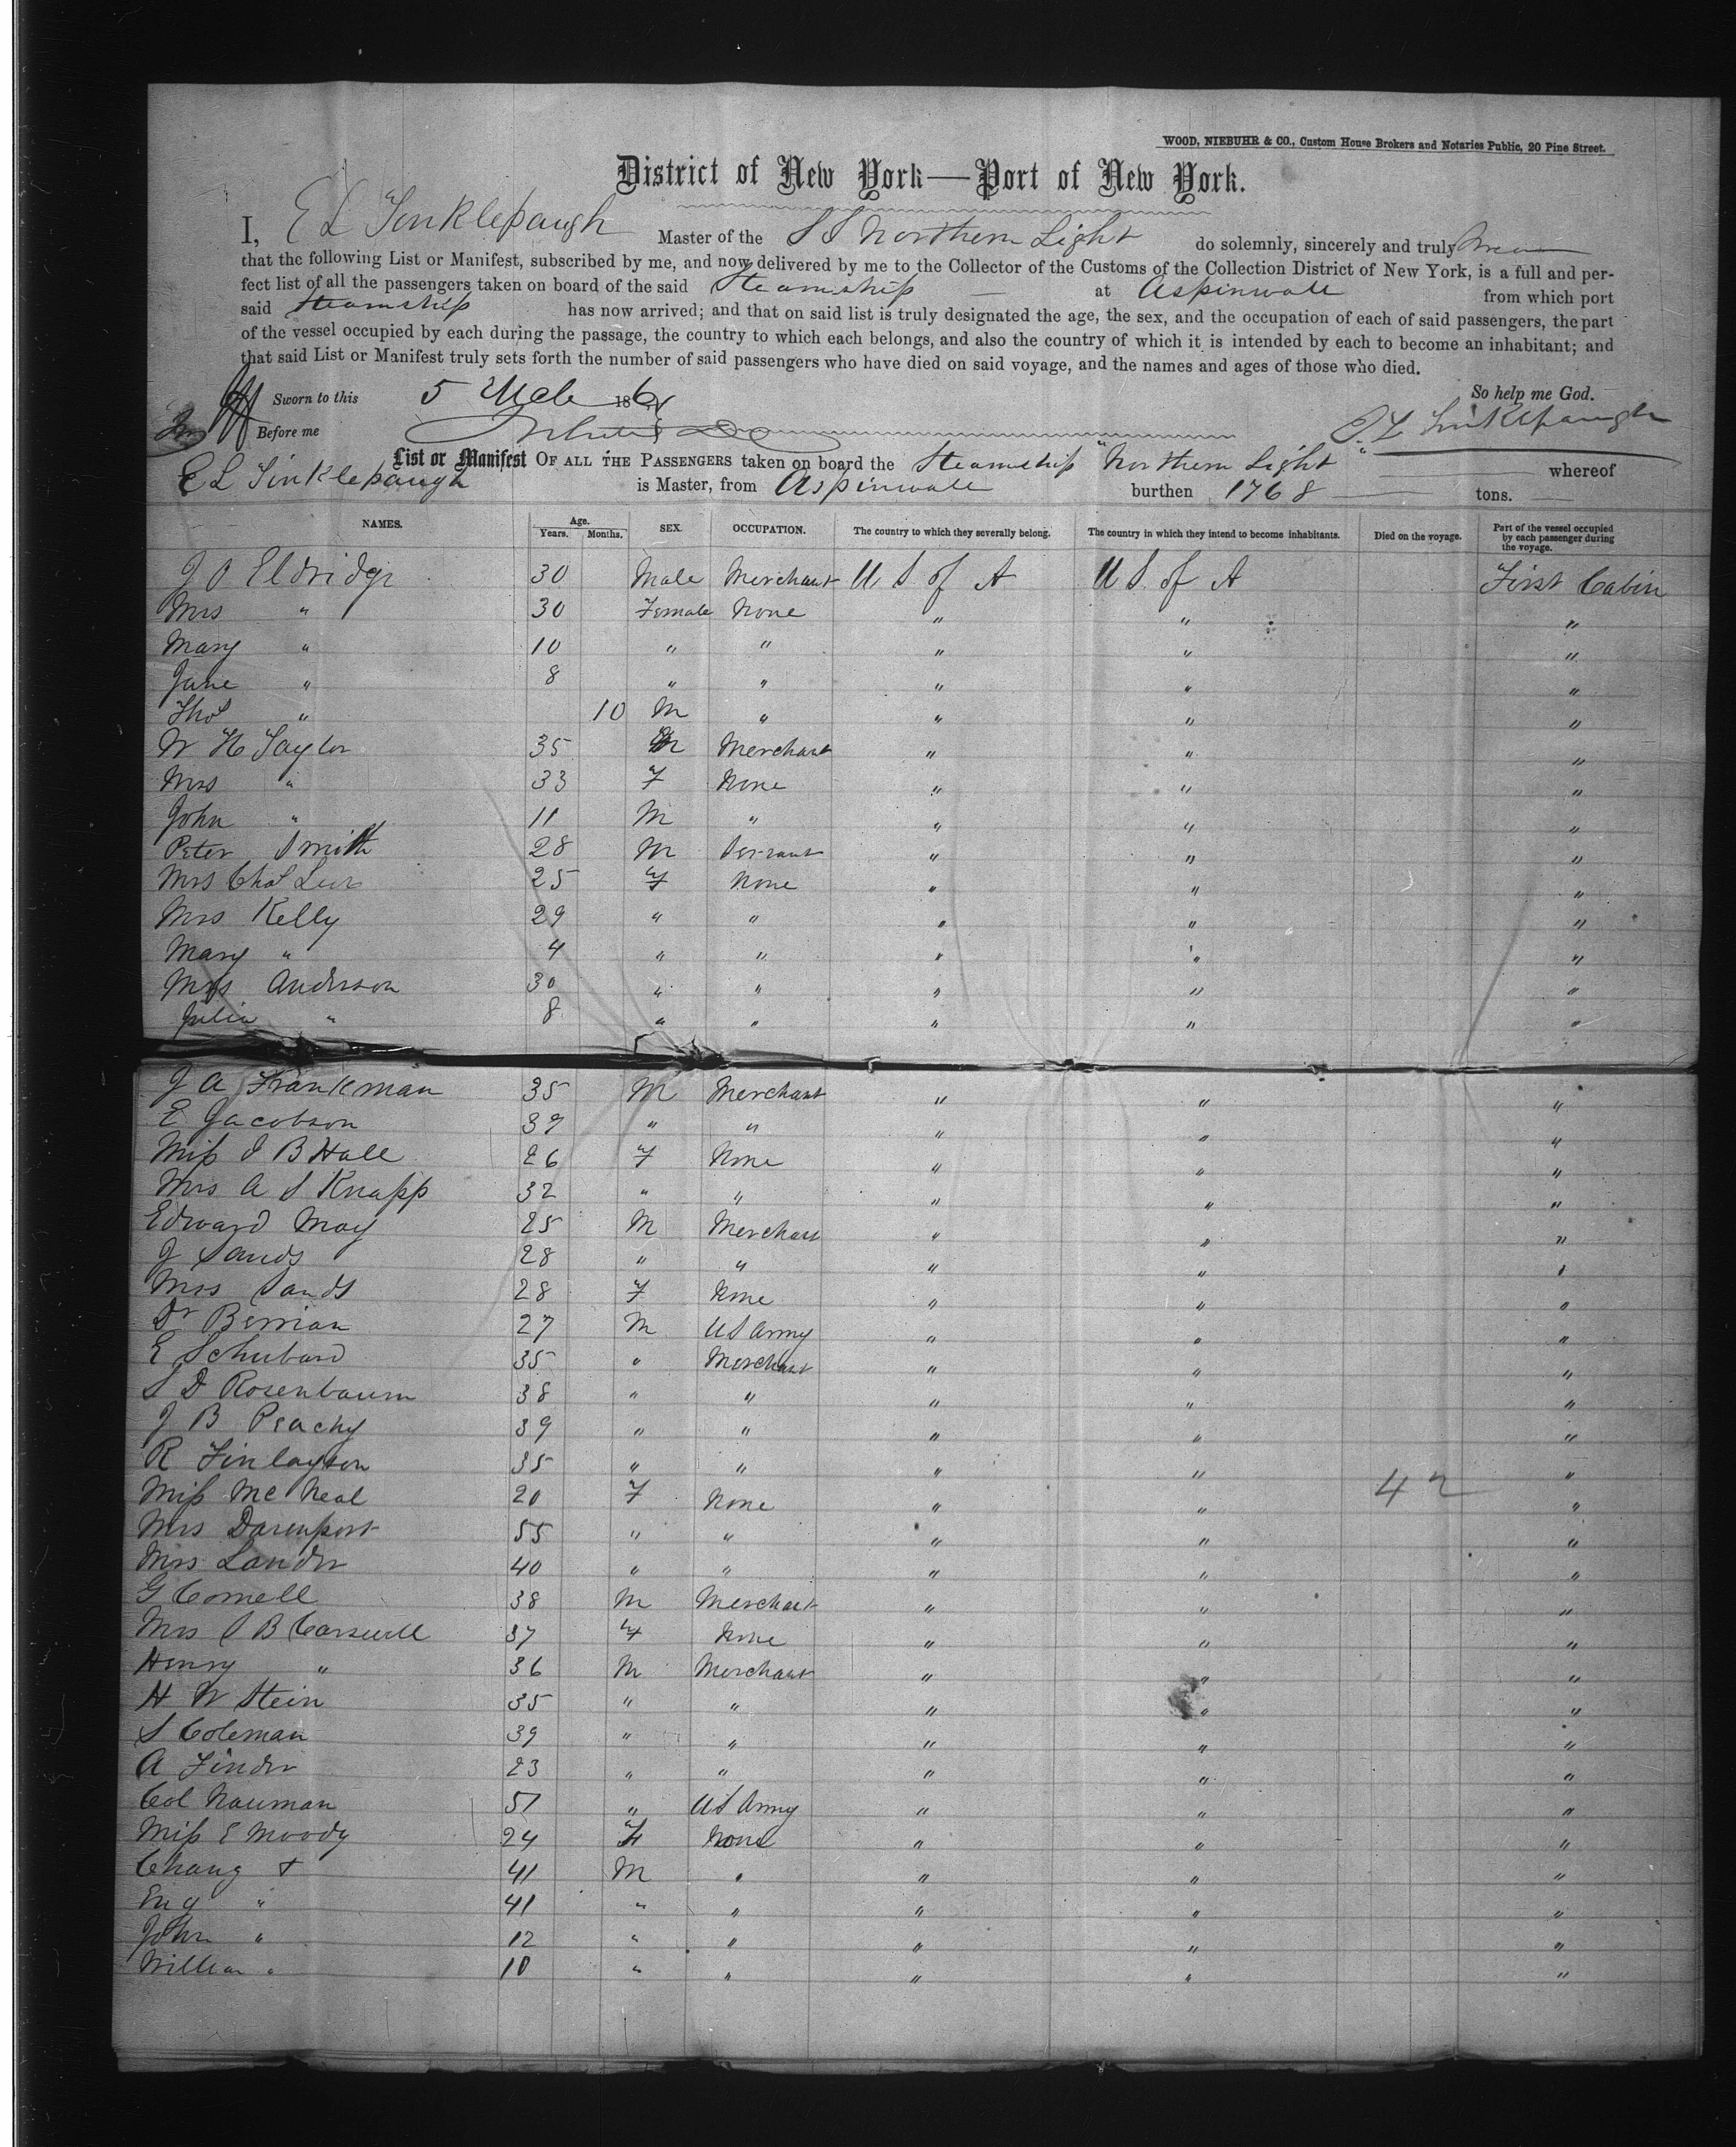 WOOD, NIEBUHR & CO., Custom House Brokers and Notaries Public, 20 Pine Street.
District of New York—Port of New York.
I, E L Tinklepaugh Master of the S S Northern Light do solemnly, sincerely and truly
that the following List or Manifest, subscribed by me, and now delivered by me to the Collector of the Customs of the Collection District of New York, is a full and per-
fect list of all the passengers taken on board of the said Steamship — at Aspinwall from which port
said Steamship has now arrived; and that on said list is truly designated the age, the sex, and the occupation of each of said passengers, the part
of the vessel occupied by each during the passage, the country to which each belongs, and also the country of which it is intended by each to become an inhabitant; and
that said List or Manifest truly sets forth the number of said passengers who have died on said voyage, and the names and ages of those who died.
Sworn to this 5 186 So help me God.
Before me E L Tinklepaugh
List or Manifest OF ALL THE PASSENGERS taken on board the Steamship "Northern Light" whereof
E L Tinklepaugh is Master, from Aspinwall burthen 1768 tons.
NAMES. Age. Years. Months. SEX. OCCUPATION. The country to which they severally belong. The country in which they intend to become inhabitants. Died on the voyage. Part of the vessel occupied by each passenger during the voyage.
J O Eldridge 30 Male Merchant U S of A U S of A First Cabin
Mrs " 30 Female None " " "
Mary " 10 " " " " "
Jane " 8 " " " " "
Thos " 10 M " " " "
W H Taylor 35 M Merchant " " "
Mrs " 33 F None " " "
John " 11 M " " " "
Peter Smith 28 M Servant " " "
Mrs Chas 25 F None " " "
Mrs Kelly 29 " " " " "
Mary " 4 " " " " "
Mrs Anderson 30 " " " " "
Julia " 8 " " " " "
J A Frankman 35 M Merchant " " "
E Jacobson 39 " " " " "
Miss J B Hall 26 F None " " "
Mrs A S Knapp 32 " " " " "
Edward May 25 M Merchant " " "
J Sands 28 " " " " "
Mrs Sands 28 F None " " "
Dr Berrian 27 M U S Army " " "
E Schubard 35 " Merchant " " "
S D Rosenbaum 38 " " " " "
J B Peachy 39 " " " " "
R Finlayson 35 " " " " "
Miss Mc Neal 20 F None " " 42 "
Mrs Davenport 55 " " " " "
Mrs Lander 40 " " " " "
G Cornell 38 M Merchant " " "
Mrs S B Carswell 37 F None " " "
Henry " 36 M Merchant " " "
H W Stein 35 " " " " "
S Coleman 39 " " " " "
A Finder 23 " " " " "
Col Nauman 51 " U S Army " " "
Miss E Moody 24 F None " " "
Chang + 41 M " " " "
Eng " 41 " " " " "
John " 12 " " " " "
William " 10 " " " " "